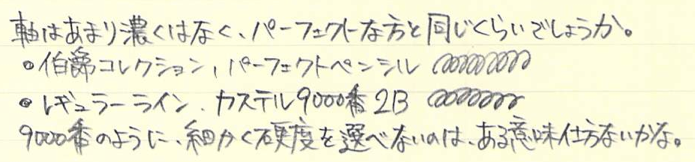 軸はあまり濃くはなく、パーフェクトな方と同じくらいでしょうか。
○伯爵コレクション、パーフェクトペンシル
●レギュラーライン、カステル9000番 2B
9000番のように、細かく硬度を選べないのは、ある意味仕方ないかな。